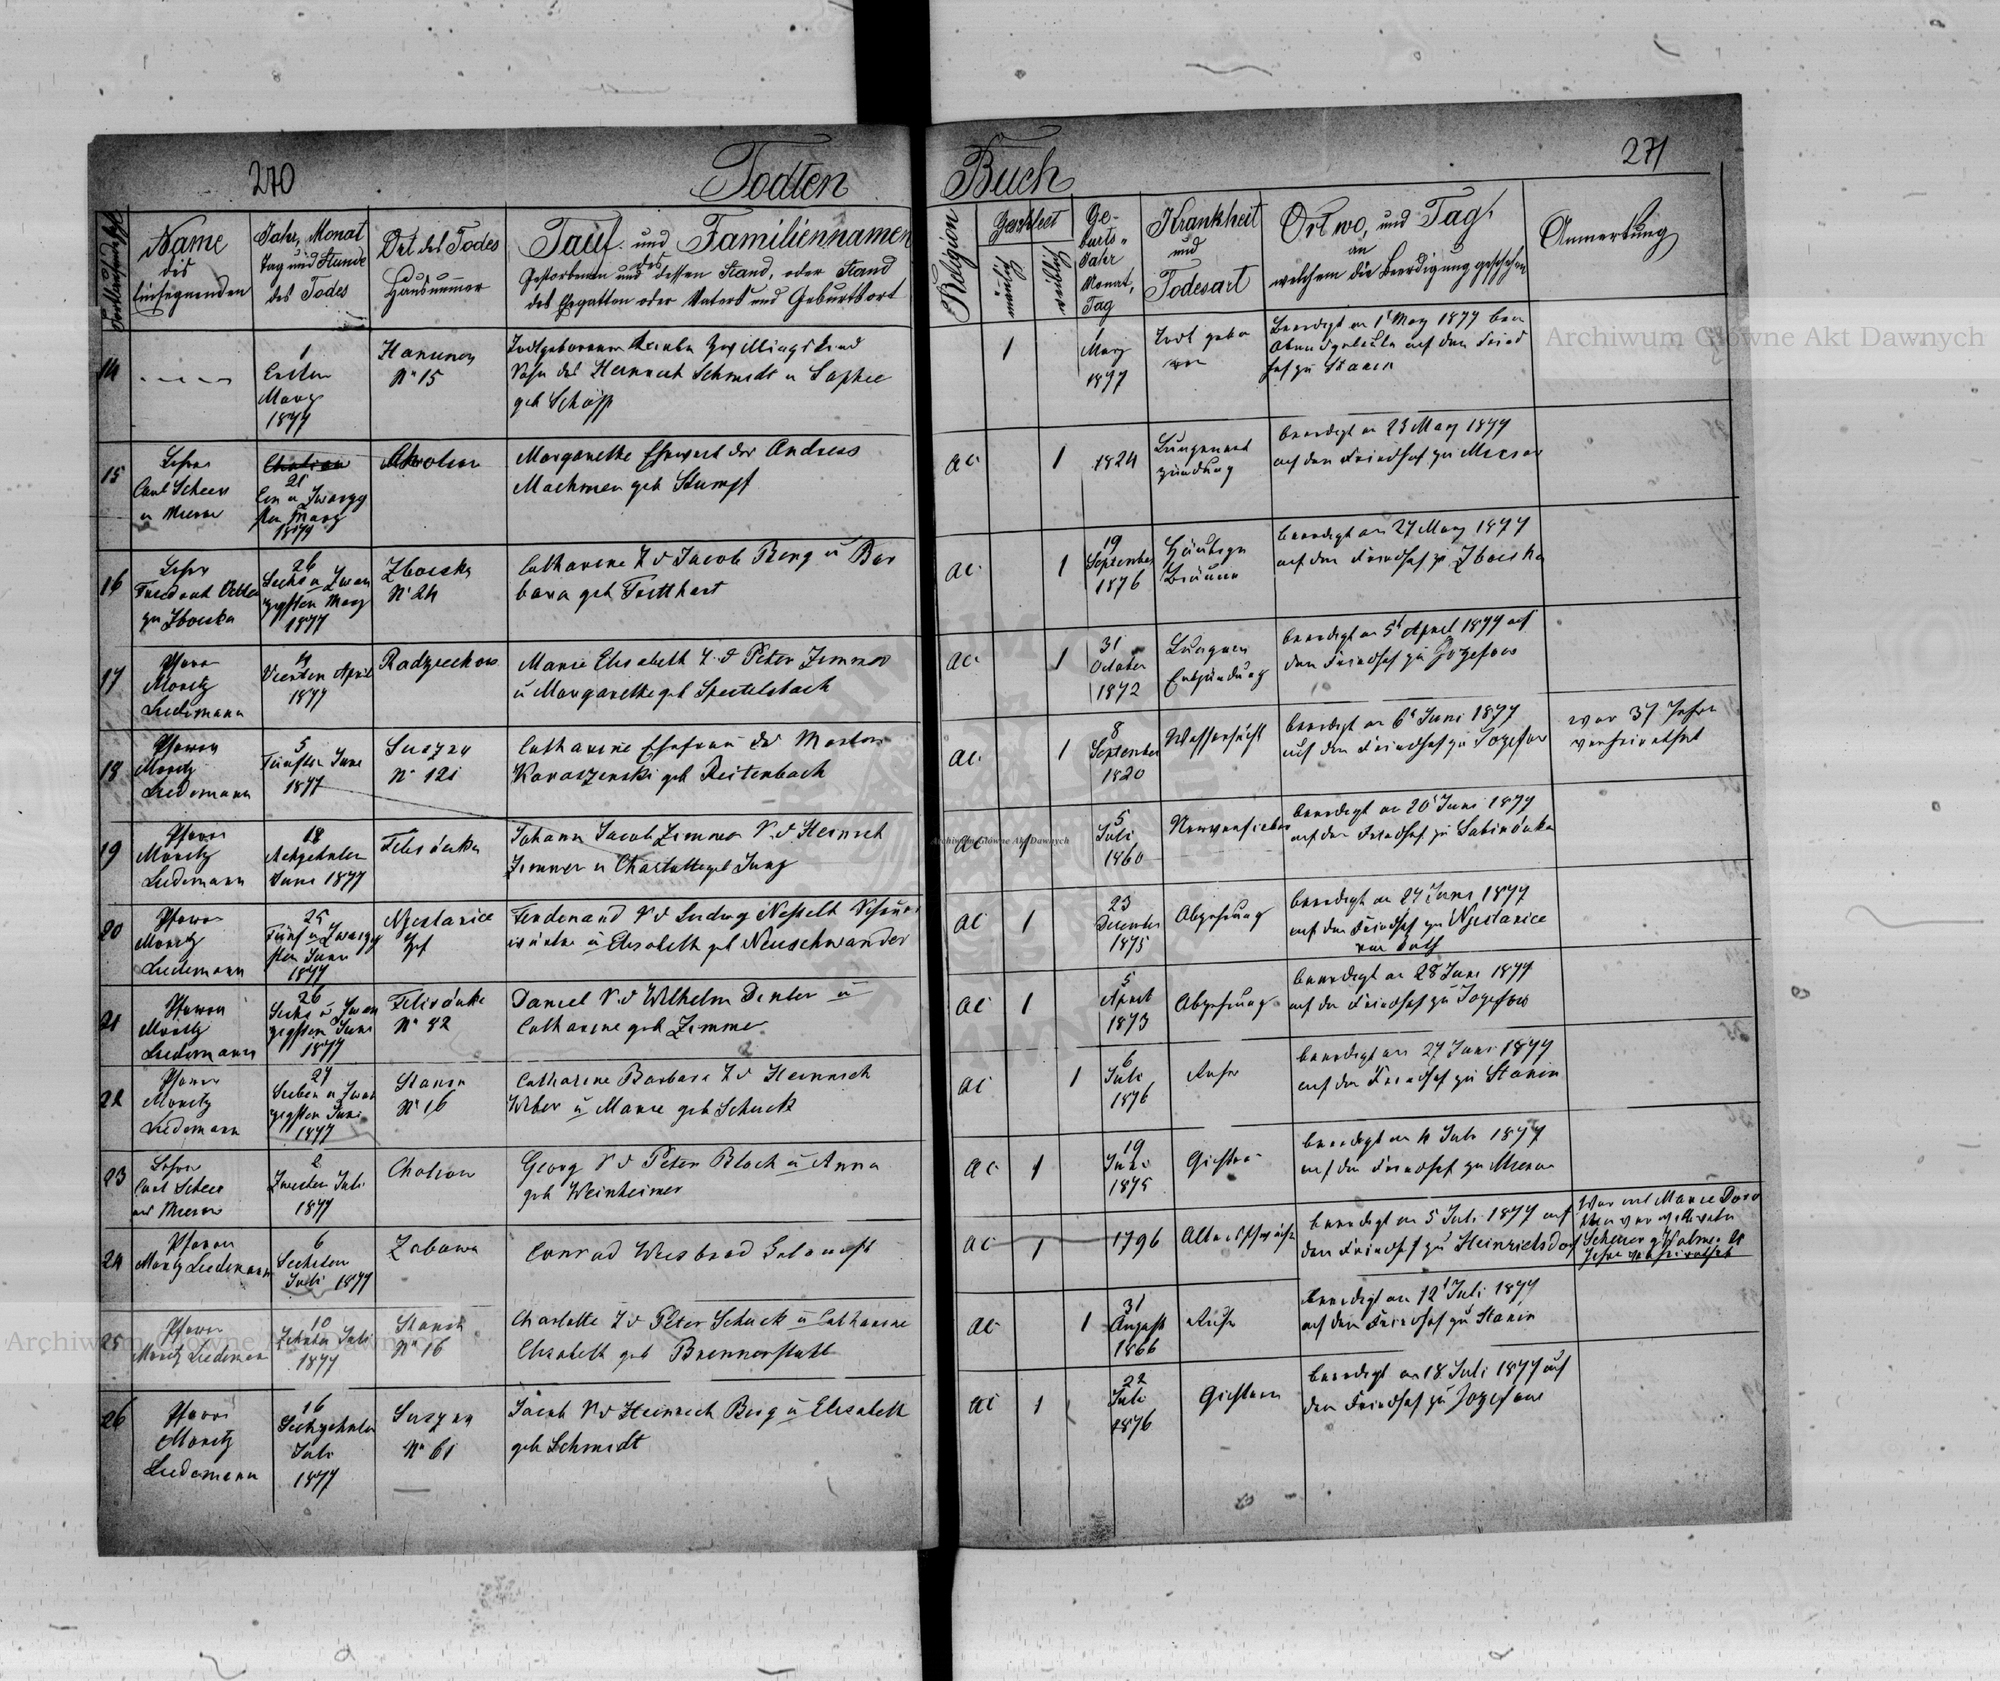 270
Todten
Buch
271
Name
des
Einsegnenden
Jahr, Monat
Tag und Stunde
des Todes
Ort des Todes
Hausnummer
Tauf- und Familiennamen
des
Gestorbenen und dessen Stand, oder Stand
des Gegatten oder Vaters und Geburtsort
Religion
Geschlecht
Ge-
burts-
Jahr
Monat,
Tag
Krankheit
und
Todesart
Ort wo, und Tag,
an
welchem die Beerdigung geschehen
Anmerkung
14
1
Ersten
März
1877
Hanunin
No 15
Todtgeborener Zwillingskind
Sohn des Heinrich Schmidt u Sophie
geb Schöpp
1
März
1877
Todt gebo
ren
Beerdigt am 1t März 1877 beim
Abendgeläute auf dem Fried
hof zu Stanin
15
Lehrer
Carl Scheer
Ein u Zwanzig
sten März
1877
Margarethe Eheweib des Andreas
Machmer geb Stumpf
ac
1
1824
Lungenent
zündung
beerdigt am 23 März 1877
auf dem Friedhof zu Mierow
16
Lehrer
zu Zboiska
26
Sechs u Zwan
zigsten März
1877
Zboiska
No 24
Catharine T d Jacob Berg u Bar
bara geb
ac
1
19
September
1876
Häutige
Bräune
beerdigt am 27 März 1877
auf dem Friedhof zu Zboiska
17
Pfarrer
Moritz
Liedemann
4
Vierten April
1877
Radziechow
Marie Elisabeth T d Peter Zimmer
u Margarethe geb Speitelsbach
ac
1
31
October
1872
Lungen
Entzündung
beerdigt am 5t April 1877 auf
dem Friedhof zu Jozefow
18
Pfarrer
Moritz
Liedemann
5
Fünften Juni
1877
Suszno
No 121
Catharine Ehefrau des
geb Reitenbach
ac
1
8
September
1820
Wassersucht
beerdigt am 6t Juni 1877
auf dem Friedhof zu Jozefow
war 37 Jahre
verheirathet
19
Pfarrer
Moritz
Liedemann
18
Achzehnten
Juni 1877
Felisówka
Johann Jacob Zimmer S. d Heinrich
Zimmer u Charlotte geb Jung
ac
1
5
Juli
1860
Nervenfieber
beerdigt am 20t Juni 1877
auf dem Friedhof zu Sabinówka
20
Pfarrer
Moritz
Liedemann
25
Fünf u Zwanzig
sten Juni
1877
Ferdinand S d Ludwig
u Elisabeth geb Neuschwander
ac
1
23
December
1875
Abzehrung
beerdigt am 27 Juni 1877
auf dem Friedhof zu
21
Pfarrer
Moritz
Liedemann
26
Sechs u Zwan
zigsten Juni
1877
Felisówka
No 42
Daniel S d Wilhelm Denler u
Catharine geb Zimmer
ac
1
5
April
1873
Abzehrung
beerdigt am 28 Juni 1877
auf dem Friedhof zu Jozefow
22
Pfarrer
Moritz
Liedemann
27
Sieben u Zwan
zigsten Juni
1877
Stanin
No 16
Catharine Barbara T d Heinrich
Weber u Marie geb Schuck
ac
1
6
Juli
1876
Ruhr
beerdigt am 27 Juni 1877
auf dem Friedhof zu Stanin
23
Lehrer
Carl Scheer
aus Mierow
2
Zweiten Juli
1877
Choliow
Georg S d Peter Bloch u Anna
geb Weinheimer
ac
1
19
1875
Gichter
beerdigt am 4 Juli 1877
auf dem Friedhof zu Mierow
24
Pfarrer
Moritz Liedemann
6
Sechsten
Juli 1877
Zabawa
Conrad Weisbrod
ac
1
1796
Altersschwäche
beerdigt am 5 Juli 1877 auf
dem Friedhof zu Heinrichsdorf
War mit Marie
Jahre verheirathet
25
Pfarrer
Moritz Liedeman
10
Zehnten Juli
1877
Stanin
No 16
Charlotte T d Peter Schuck u Catharine
Elisabeth geb
ac
1
31
August
1866
Ruhr
beerdigt am 12t Juli 1877
auf dem Friedhof zu Stanin
26
Pfarrer
Moritz
Liedemann
16
Sechzehnten
Juli
1877
Suszno
No 61
Jacob S d Heinrich Berg u Elisabeth
geb Schmidt
ac
1
22
Juli
1876
Gichtern
beerdigt am 18 Juli 1877 auf
dem Friedhof zu Jozefow
Archiwum Główne Akt Dawnych
Archiwum Główne Akt Dawnych
Archiwum Główne Akt Dawnych